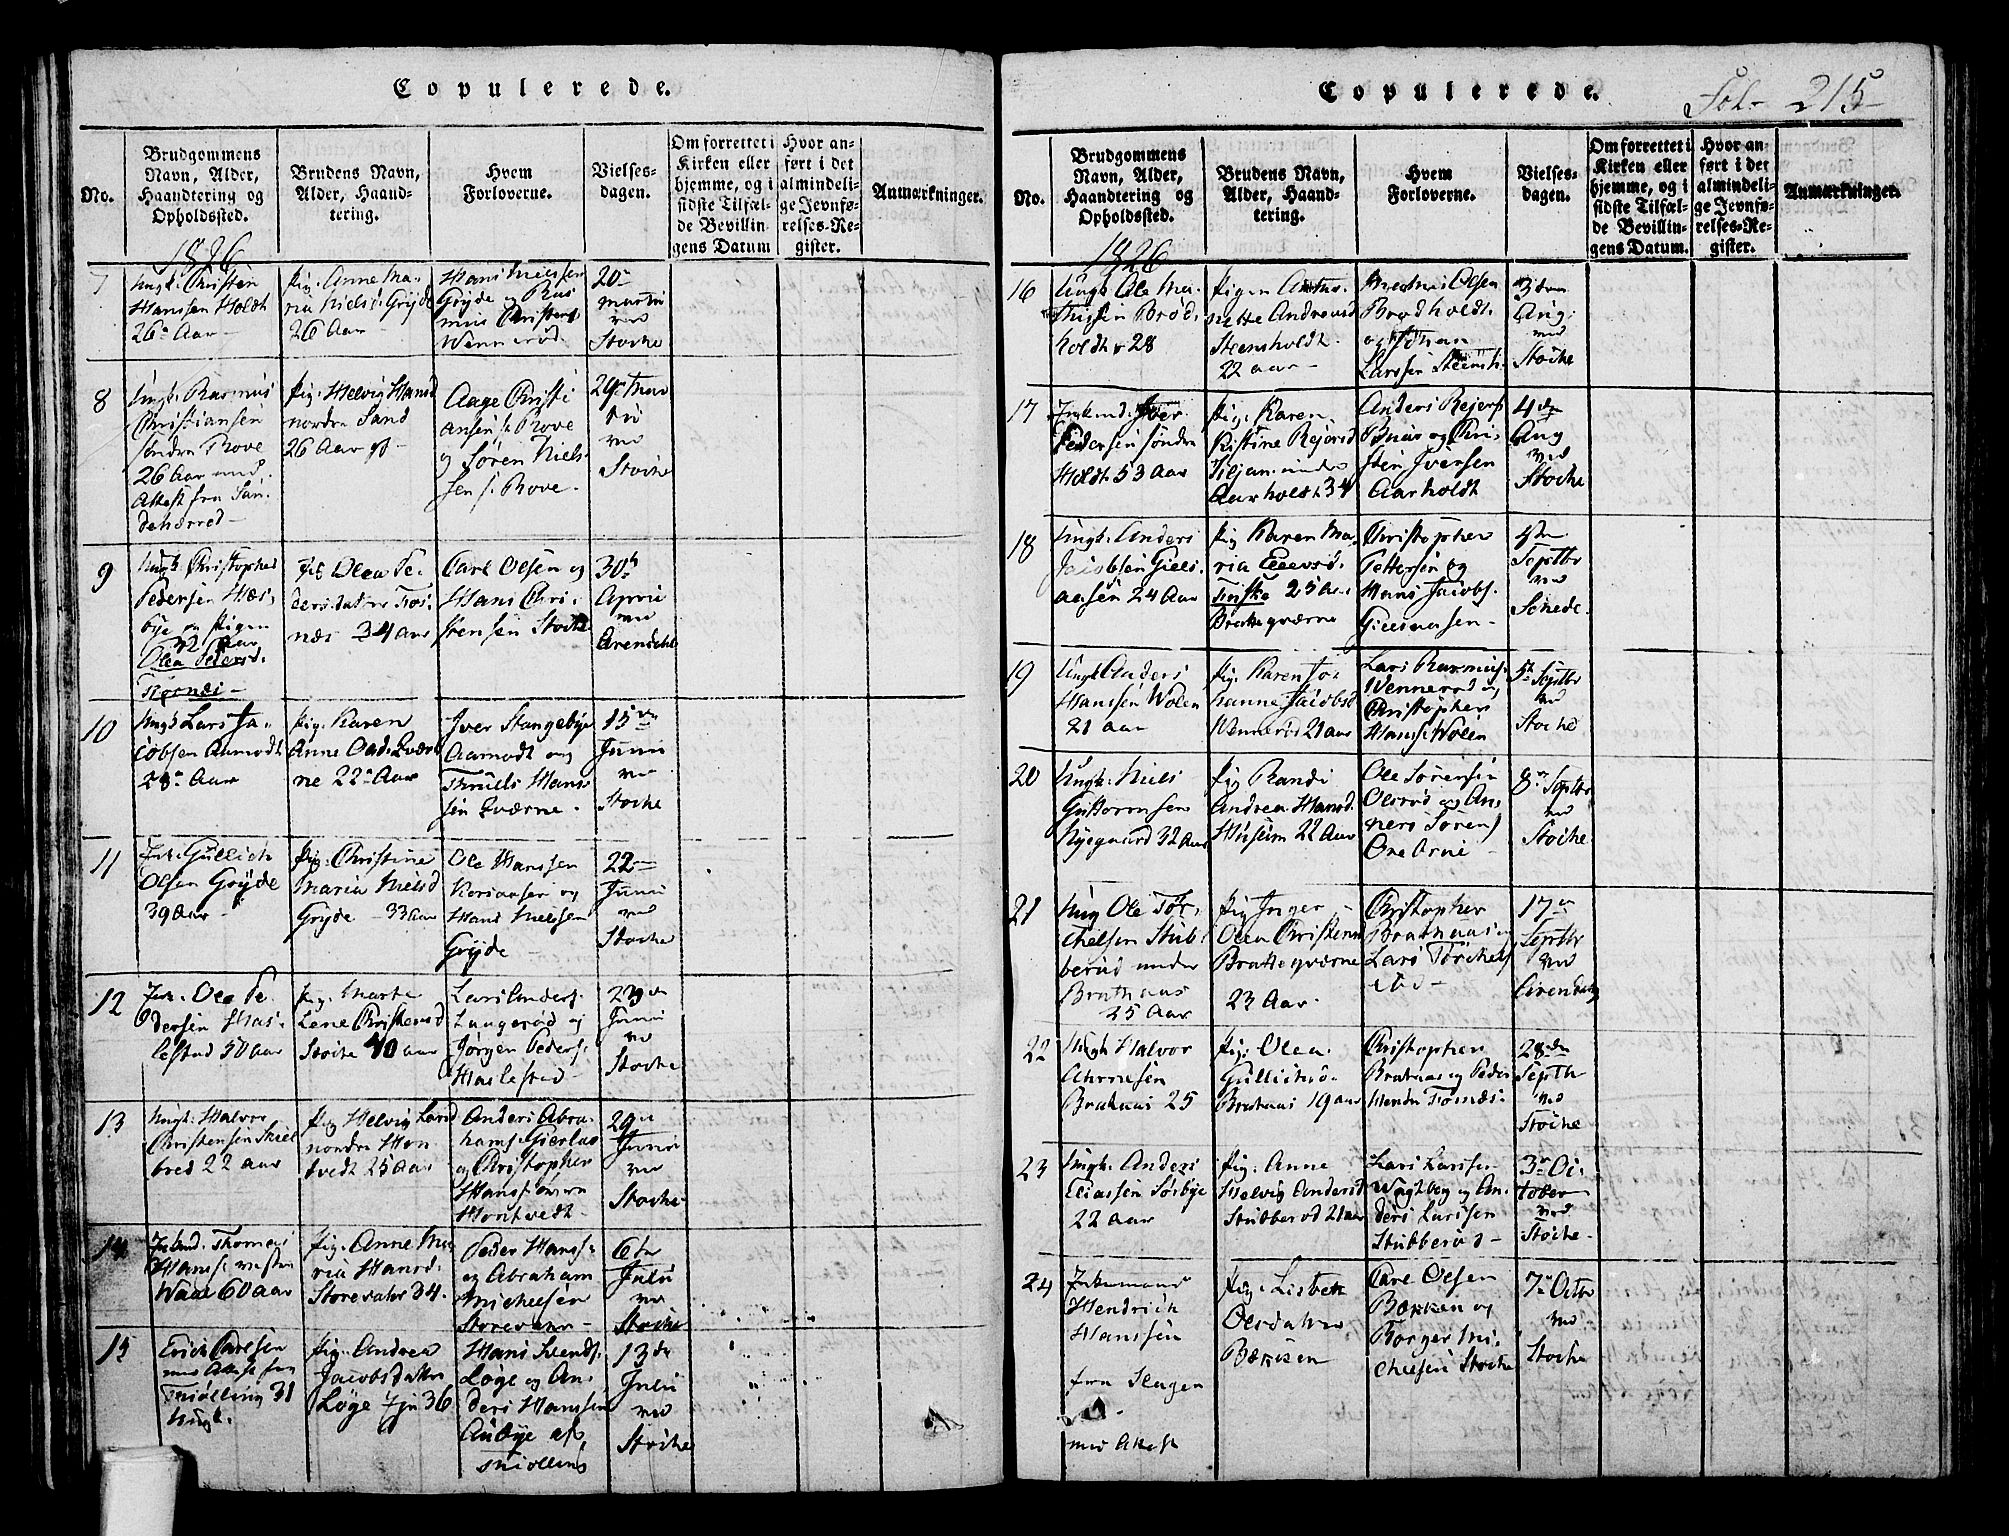 Copulerede.
No.
Brudgommens
Navn, Alder,
Haandtering og
Opholdssted.
Brudens Navn,
Alder, Haand-
tering.
Hvem
Forloverne.
Vielses-
dagen.
Om forrettet i
Kirken eller
hjemme, og i
sidste Tilfæl-
de Bevillin-
gens Datum
Hvor an-
ført i det
almindeli-
ge Jevnfø-
relses-Re-
gister.
Anmærkninger.
1826
7
Ungk. Christen
Hanssen Holdt
26 Aar
Pig. Anne Ma-
ria Niels. Gryde
26 Aar
Hans Nielssen
Gryde og Ras
mus Christens
Wennerød
20
Martii
ved
Stocke
8
Ungk. Rasmus
Christiansen
søndre Rove
26 Aar med
Attest fra San-
deherred
Pig. Helvig Hansd
nordre Sand
26 Aar
Aage Christi
ansen s. Rove
og Søren Niels-
sen s. Rove.
29
ved
Stocke
9
Ungk. Christopher
Pedersen
32 Aar
Olea Pedersd.
Pig. Olea Pe-
dersdatter
34 Aar
Carl Olsen og
Hans Chri-
stensen Stocke
30
April
ved
Arendahl
10
Ungk. Lars Ja-
cobsen Aamodt
28 Aar
Pig. Karen
Anne Olsd. Qvær
ne 22 Aar
Iver Stangebye
Aamodt og
Truels Hans
sen Qværne.
15
Junii
ved
Stocke
11
Gullich
Olsen Gryde
39 Aar
Pig. Christine
Maria Nielsd
Gryde 33 aar
Ole Hanssen
og
Hans Nielssen
Gryde
22
Junii
ved
Stocke
12
Ole Pe-
dersen Has-
lestad 50 aar
Pig. Marte
Lene Christensd
Stocke 40 aar
Lars Anders.
Langerød og
Jørgen Peders.
Haslestad
23
Junii
ved
Stocke
13
Ungk. Halvor
Christensen Skiel
bred 22 aar
Pig. Helvig Larsd
nordre Hon-
tvedt 25 Aar
Anders Abra-
hams.
og Christopher
Hans.
Hontvedt
29
Junii
ved
Stocke
14
Thomas
Hans.
60 aar
Pig. Anne Ma-
ria Hansd.
Storevahr 34.
Peder Hanss.
og Abraham
Michelsen
Storevahr
6te
Julii
ved
Stocke
15
Erich Carlsen
med Attest fra
31
Ungk.
Pig. Andrea
Jacobsdatter
Løge 36
Hans Svends.
Løge og An-
ders Hanssen
13de
Julii
ved
Stocke
Copulerede.
Fol. 215
No.
Brudgommens
Navn, Alder,
Haandtering og
Opholdssted.
Brudens Navn,
Alder, Haand-
tering.
Hvem
Forloverne.
Vielses-
dagen.
Om forrettet i
Kirken eller
hjemme, og i
sidste Tilfæl-
de Bevillin-
gens Datum.
Hvor an-
ført i det
almindeli-
ge Jevnfø-
relses-Re-
gister.
Anmærkninger.
1826
16
Ungk. Ole Ma-
thisen Brød-
holdt 28
Pigen Antho-
nette Andreasd
Steensholdt
22 aar
Olsen
Brødholdt
og Johan
Larssen Steensh.
3die
Aug.
ved
Stocke
17
Enkemd. Iver
Pedersen søndre
Holdt 53 Aar
Pig. Karen
Kirstine Rejersd
under
Aarholdt 34
Anders Rejers
og Chri-
sten Iversen
Aarholdt
4de
Aug
ved
Stocke
18
Ungk. Anders
Jacobsen Giels-
aasen 24 Aar
Pig Karen Ma-
ria
25 a.
Brekkeqværne
Christopher
Pettersen og
Hans Jacobs.
Gielsaasen
Septbr
ved
19
Ungk. Anders
Hanssen Wolen
21 aar
Pig. Karen Jo-
hanne Jacobsd
Vennerød 21 aar
Lars Rasmus.
Wennerød og
Christopher
Hans. Wolen
5te Septbr
ved
Stocke
20
Ungk. Niels
Guttormsen
Nygaard 32 Aar
Pig Randi
Andrea Hansd.
Huseum 22 Aar
Ole Sørensen
Olsrød og An-
ders Sørens
8 Septbr
ved
Stocke
21
Ung Ole Tor-
chelsen Stub-
berud under
Bratnaas
25 Aar
Pig Inger
Olea Christensd
Brekkeqværne
23 Aar.
Christopher
Bratnaas og
Lars Torchels
ibd
17
Septbr
ved
Arendahl
22
Ungk Halvor
Arnesen
Bratnaas 25
Pig. Olea
Gullichsd.
Bratnaas 19 aar
Christopher
Bratnaas og Peder
28de
Septb
ved
Stocke
23
Ungk. Anders
Eliassen Sørbye
22 aar
Pig. Anne
Helvig Andersd
Stubberød 21 aar
Lars Larssen
og An-
ders Larssen
Stubberød
3 Oc-
tober
ved
Stocke
24
Enkemand
Hendrich
Hanssen
fra Slagen
med Attest
Pig. Lisbeth
Olsdatter
Bækken
Carl Olsen
Bækken og
Borger Mi-
chelsen Stocke
7 Octbr
ved
Stocke